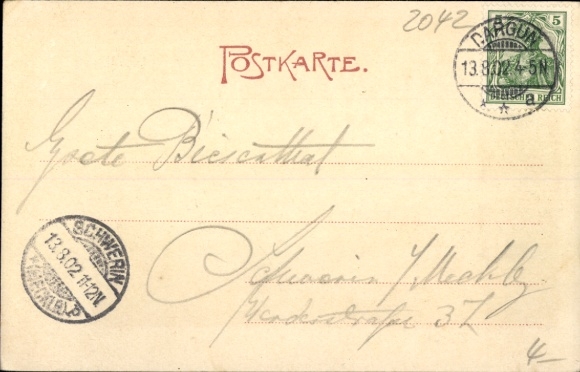 2042
POSTKARTE.
5
REICH
DARGUN
13.8.02 4-5N
* * a
Grete Biesenthal
SCHWERIN
13.8.02.11-12N.
(MECKLB) P
Schwerin i/Mecklbg
Werderstraße 37
4—